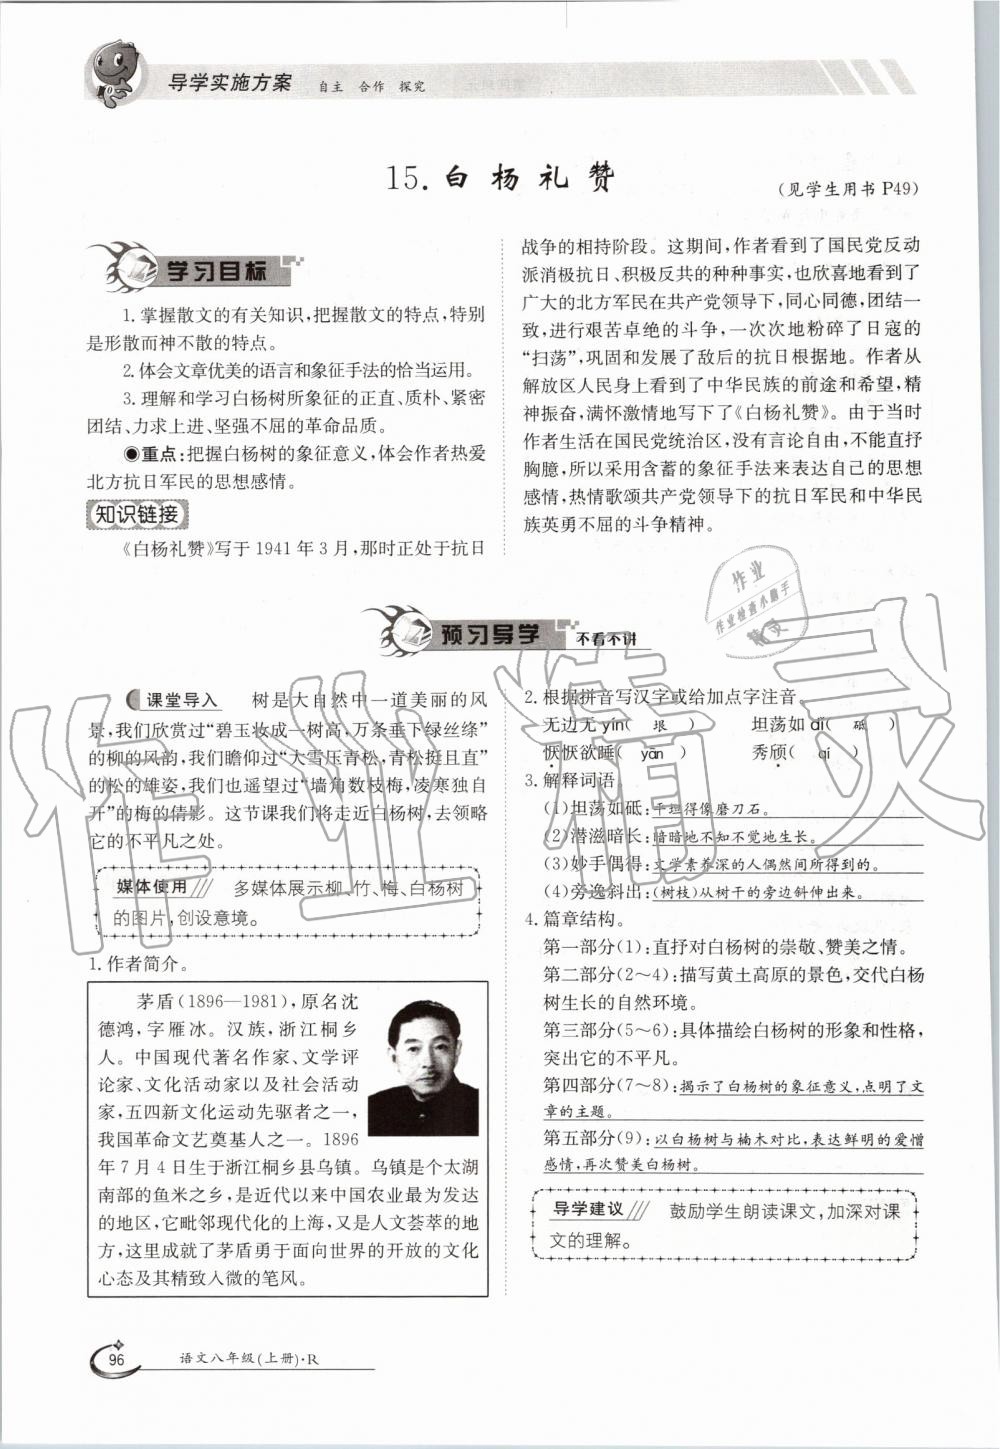 导学实施方案 自主 合作 探究
15.白杨礼赞
(见学生用书 P49)
学习目标
1.掌握散文的有关知识,把握散文的特点,特别
是形散而神不散的特点。
2.体会文章优美的语言和象征手法的恰当运用。
3.理解和学习白杨树所象征的正直、质朴、紧密
团结、力求上进、坚强不屈的革命品质。
◉重点:把握白杨树的象征意义,体会作者热爱
北方抗日军民的思想感情。
知识链接
《白杨礼赞》写于 1941 年 3 月,那时正处于抗日
战争的相持阶段。这期间,作者看到了国民党反动
派消极抗日、积极反共的种种事实,也欣喜地看到了
广大的北方军民在共产党领导下,同心同德,团结一
致,进行艰苦卓绝的斗争,一次次地粉碎了日寇的
“扫荡”,巩固和发展了敌后的抗日根据地。作者从
解放区人民身上看到了中华民族的前途和希望,精
神振奋,满怀激情地写下了《白杨礼赞》。由于当时
作者生活在国民党统治区,没有言论自由,不能直抒
胸臆,所以采用含蓄的象征手法来表达自己的思想
感情,热情歌颂共产党领导下的抗日军民和中华民
族英勇不屈的斗争精神。
预习导学 不看不讲
课堂导入 树是大自然中一道美丽的风
景,我们欣赏过“碧玉妆成一树高,万条垂下绿丝绦”
的柳的风韵,我们瞻仰过“大雪压青松,青松挺且直”
的松的雄姿,我们也遥望过“墙角数枝梅,凌寒独自
开”的梅的倩影。这节课我们将走近白杨树,去领略
它的不平凡之处。
媒体使用 多媒体展示柳、竹、梅、白杨树
的图片,创设意境。
1.作者简介。
茅盾(1896—1981),原名沈
德鸿,字雁冰。汉族,浙江桐乡
人。中国现代著名作家、文学评
论家、文化活动家以及社会活动
家,五四新文化运动先驱者之一,
我国革命文艺奠基人之一。1896
年 7 月 4 日生于浙江桐乡县乌镇。乌镇是个太湖
南部的鱼米之乡,是近代以来中国农业最为发达
的地区,它毗邻现代化的上海,又是人文荟萃的地
方,这里成就了茅盾勇于面向世界的开放的文化
心态及其精致入微的笔风。
2.根据拼音写汉字或给加点字注音
无边无 yín( 垠 ) 坦荡如 dǐ( 砥 )
恹恹欲睡( yān ) 秀颀( qí )
3.解释词语
(1)坦荡如砥:平坦得像磨刀石。
(2)潜滋暗长:暗暗地不知不觉地生长。
(3)妙手偶得:文学素养深的人偶然间所得到的。
(4)旁逸斜出:(树枝)从树干的旁边斜伸出来。
4.篇章结构。
第一部分(1):直抒对白杨树的崇敬、赞美之情。
第二部分(2~4):描写黄土高原的景色,交代白杨
树生长的自然环境。
第三部分(5~6):具体描绘白杨树的形象和性格,
突出它的不平凡。
第四部分(7~8):揭示了白杨树的象征意义,点明了文
章的主题。
第五部分(9):以白杨树与楠木对比,表达鲜明的爱憎
感情,再次赞美白杨树。
导学建议 鼓励学生朗读课文,加深对课
文的理解。
96 语文八年级(上册)·R
作业
作业检查小助手
精灵
作业精灵